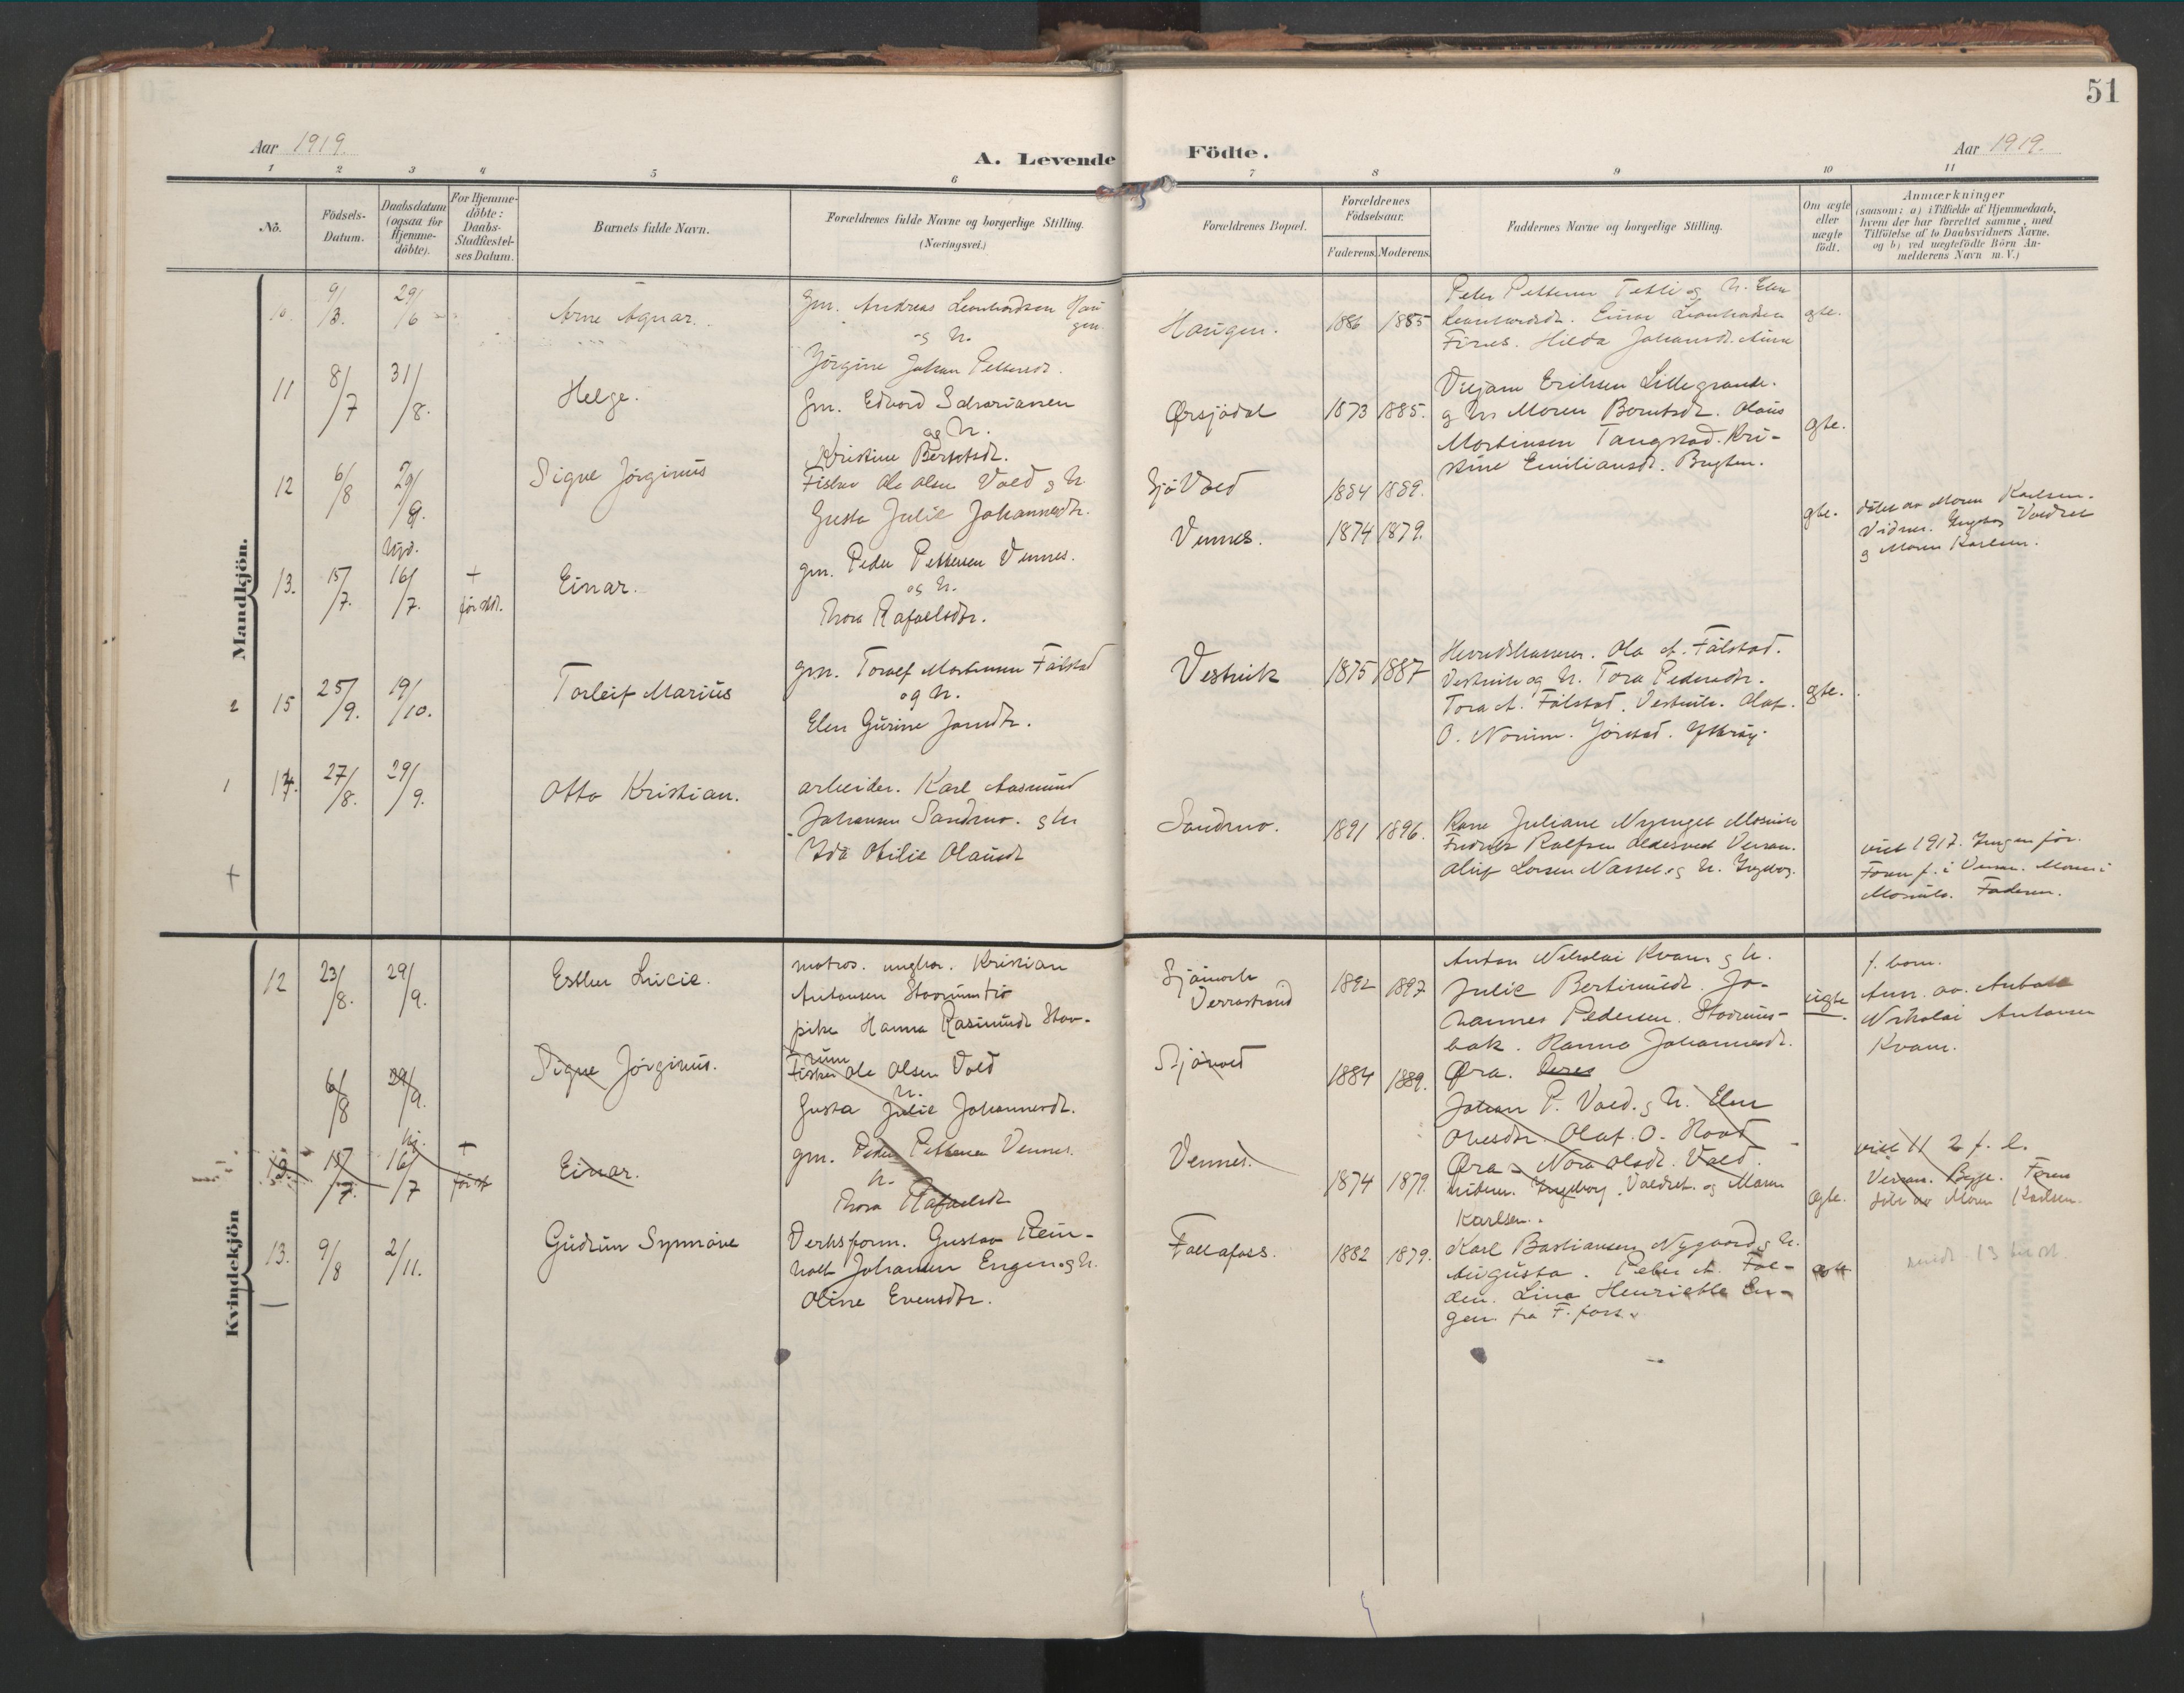 51
Aar 1919.
A. Levende Födte.
Aar 1919.
1 2 3 4 5 6 7 8 9 10 11
No.
Födsels-
Datum.
Daabsdatum
(ogsaa for
Hjemme-
döbte).
For Hjemme-
döbte:
Daabs-
Stadfæstel-
ses Datum.
Barnets fulde Navn.
Forældrenes fulde Navne og borgerlige Stilling.
(Næringsvei.)
Forældrenes Bopæl.
Forældrenes
Födselsaar.
Faderens. Moderens.
Faddernes Navne og borgerlige Stilling.
Om ægte
eller
uægte
födt.
Anmærkninger
(saasom: a) i Tilfælde af Hjemmedaab,
hvem der har forrettet samme, med
Tilföielse af to Daabsvidners Navne.
og b) ved uægtefödte Börn An-
melderens Navn m. V.)
Mandkjön.
10. 9/3. 29/6 Arne Agnar.
Gm. Andreas Leonhardsen Hau
gen.
og h.
Jörgine Johan Pettersdt.
Haugen. 1886 1885
Peter Pettersen Tetli og h. Elen
Leonhardsdt. Einar Leonhardsen
Fines. Hilda Johansdt. Aune
gte.
11 8/7 31/8. Helge.
Gm. Edvard Schariansen
og h.
Kristine Berntsdt.
Ørsjödal 1873 1885.
Viljam Eriksen Lillegrande.
g hs Maren Berntsdt. Olaus
Mortensen Tangstad. Kri-
stine Emiliansdt. Bugten.
gte.
12 6/8 29/9. Signe Jörginus
Fisker Ole Olsen Vold g h
Gusta Julie Johannesdtr.
Sjö Vold 1884 1889.
gte.
döbt av Maren Karlsen.
Vidner. Ingeborg Voldset
g Maren Karlsen.
13. 15/7. Hjd. 16/7. + för stdt. Einar.
gm. Peder Pettersen Vennes.
og h.
Thora Rafaelsdtr.
Vennes. 1874 1879.
2 15 25/9. 19/10. Torleif Marius
gm. Toralf Martinsen Fálstad
og h.
Elen Gurine Jonsdtr.
Vestvik 1875 1887
Herredskasserer. Ola A. Fálstad.
Vestvik og h. Tora Pedersdtr.
Tora A. Fálstad. Vestvik. Olaf
O. Norum. Jörstad. Ytteröy.
gte.
1 14. 27/8. 29/9. Otto Kristian.
arbeider. Karl Aasmund
Johansen Sandmo. g hs
Ida Otilie Olausdt
Sandmo. 1891 1896.
Kone Juliane Nyenget Mosvik
Fredrik Rolfsen Aldersund Verran.
Aluf Larsen Nassel. g h. Ingeborg.
viet 1917. Ingen för.
Faren f. i Verran. Moren i
Mosvik. Faderen.
+
Kvindekjön
12 23/8. 29/9. Esther Lucie.
matros. ungkar. Kristian
Antonsen Storum fr
pike Hanna Rasmusdt Stor-
rum
Sjöinorli
Verrastrand
1892 1897
Anton Nikolai Kvam g h.
Julie Bertinusdt. Jo-
hannes Pedersen. Storums-
bak. Hanna Johannesdt.
Øra.
uægte
1. barn.
Anm. av. Anton
Nikolai Antonsen
Kvam.
6/8 29/9. Signe Jörginus.
Fisker Ole Olsen Vold
h.
Gusta Julie Johannesdt.
Sjövold 1884 1889.
Johan P. Vold. g h. Elen
Olesdtr. Olaf. O. Hovd
Øra. Nora Olsdt. Vold.
13. 15/7. Hj. 16/7 + för st Einar.
gm. Peder Pettersen Vennes.
h.
Thora Rafaelsdt
Vennes. 1874 1879.
vidner. Ingeborg. Voldset. og Maren
Karlsen.
gte.
viet 11 2 f. l.
Verran. Begge. Faren
döbt av Maren Karlsen.
13. 9/8 2/11. Gudrun Synnöve
Verksform. Gustav Rein-
holt Johansen Engen. g h.
Oline Evensdtr.
Follafoss. 1882 1879.
Karl Bastiansen Nygaard g h.
Augusta. Peter A. Fol-
den. Lina Henriette En-
gen. fra F. foss.
gte
sendt 13 til st.